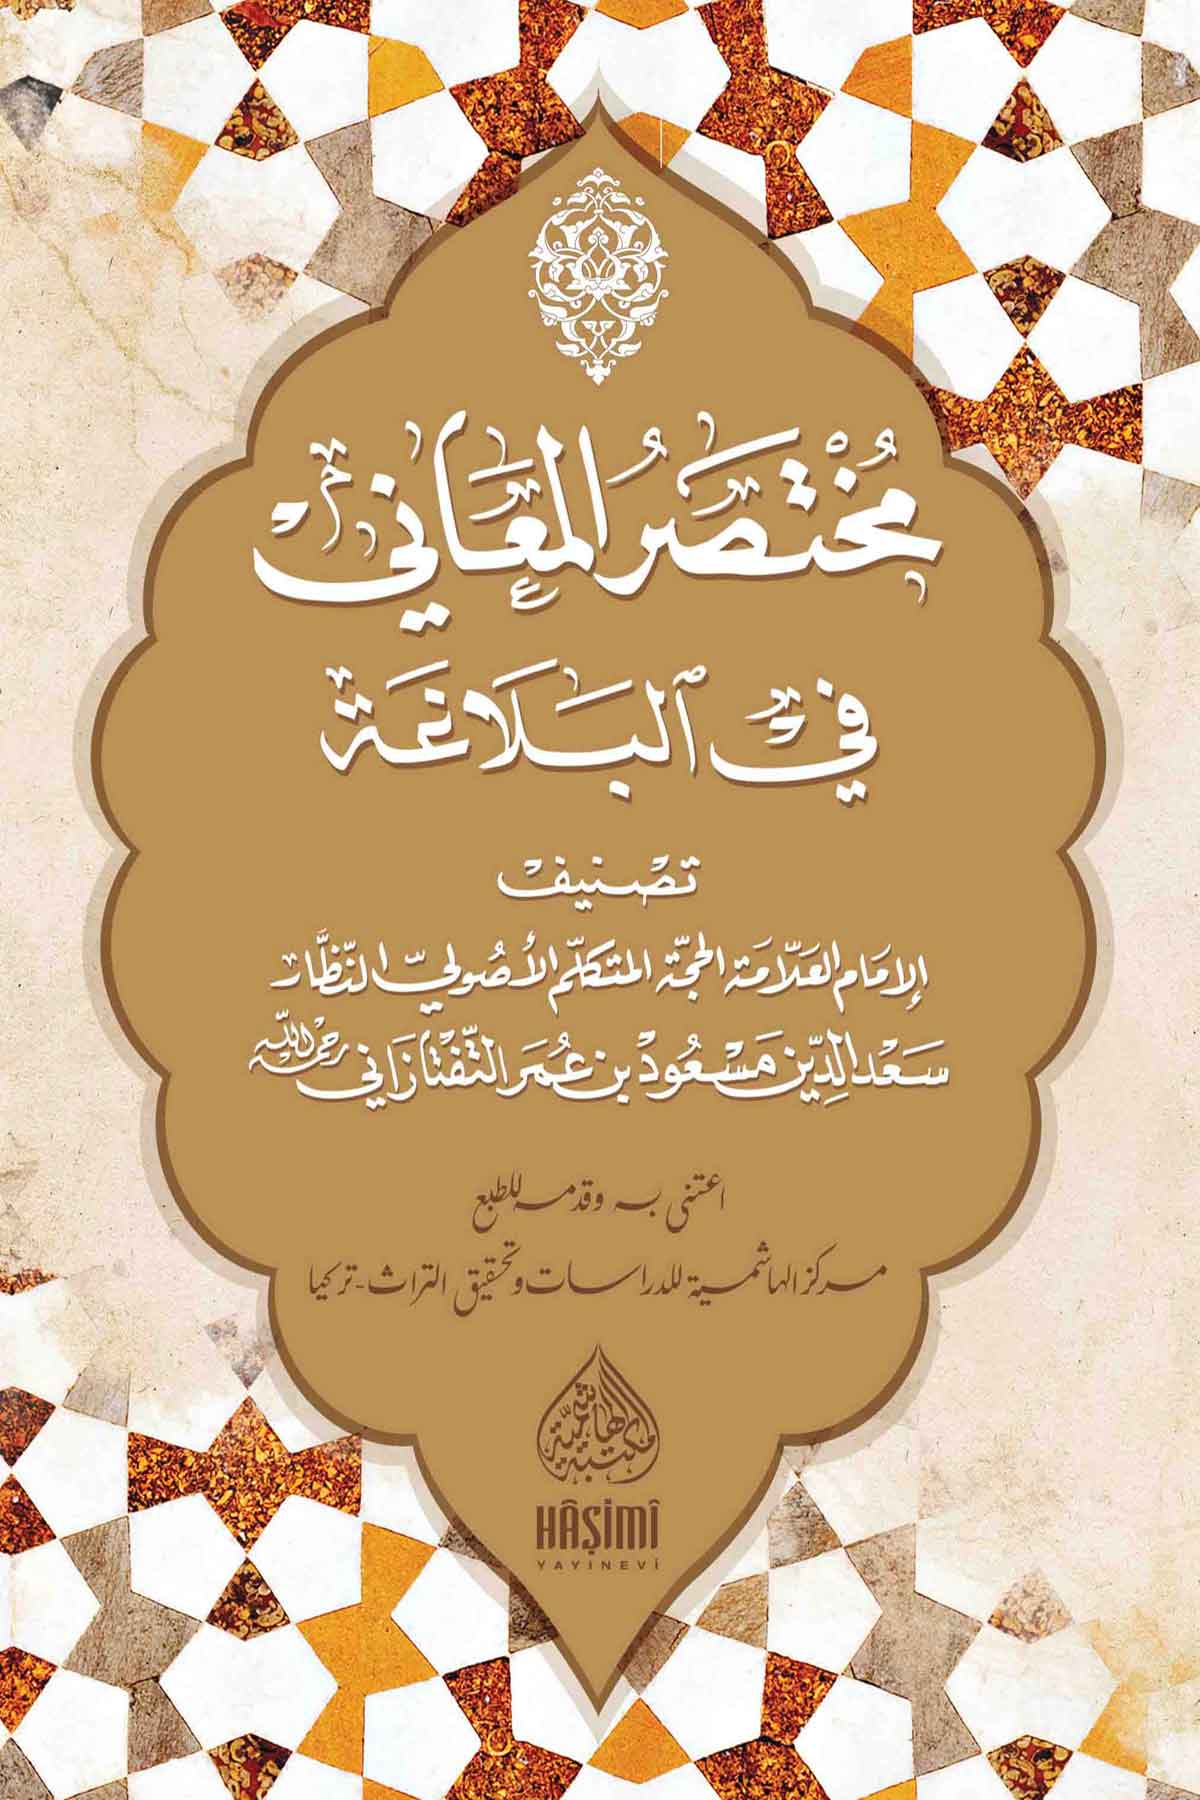 مُخْتَصَرُ الْمَعَانِي
فِي ٱلْبَلَاغَة
تصنيف
الإمَام العَلّامَة الحجّة المتكلّم الأصُوليّ النّظَّار
سَعْد الدِّين مَسْعُودْ بن عُمَر التَّفْتَازَاني رحمه الله
اعتنى به وقدمه للطبع
مركز الهاشمية للدراسات وتحقيق التراث - تركيا
المكتبة الهاشميّة
HÂŞİMÎ
YAYINEVİ